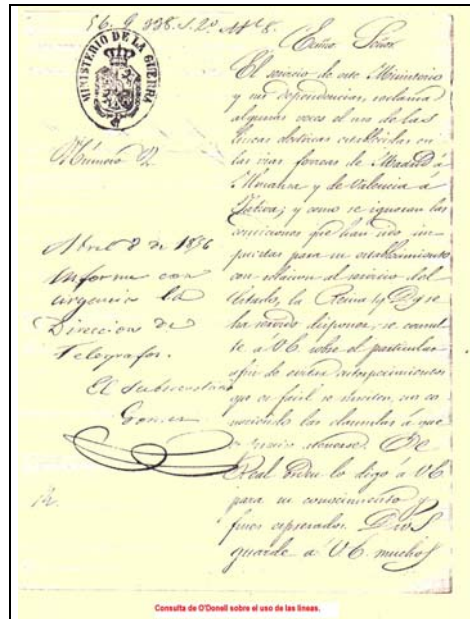 MINISTERIO DE LA GUERRA
Número 2
Abril 8 de 1856
Informe con
urgencia la
Direccion de
Telegrafos.
El Subsecretario
Gomez
Exmo Señor
El servicio de este Ministerio
y sus dependencias, reclama
algunas veces el uso de las
lineas electricas establecidas en
las vias ferreas de Madrid á
Almansa y de Valencia á
Játiva; y como se ignoran las
condiciones que han sido im-
puestas para su establecimiento
con relacion al servicio del
Estado, la Reina q D g se
ha servido disponer, se consul-
te á V.E. sobre el particular
afin de evitar entorpecimientos
que es facil se susciten, no co-
nociendo las clausulas á que
De
Real orden lo digo á V.E.
para su conocimiento y
fines espresados. Dios
guarde á V.E. muchos
Consulta de O'Donell sobre el uso de las líneas.